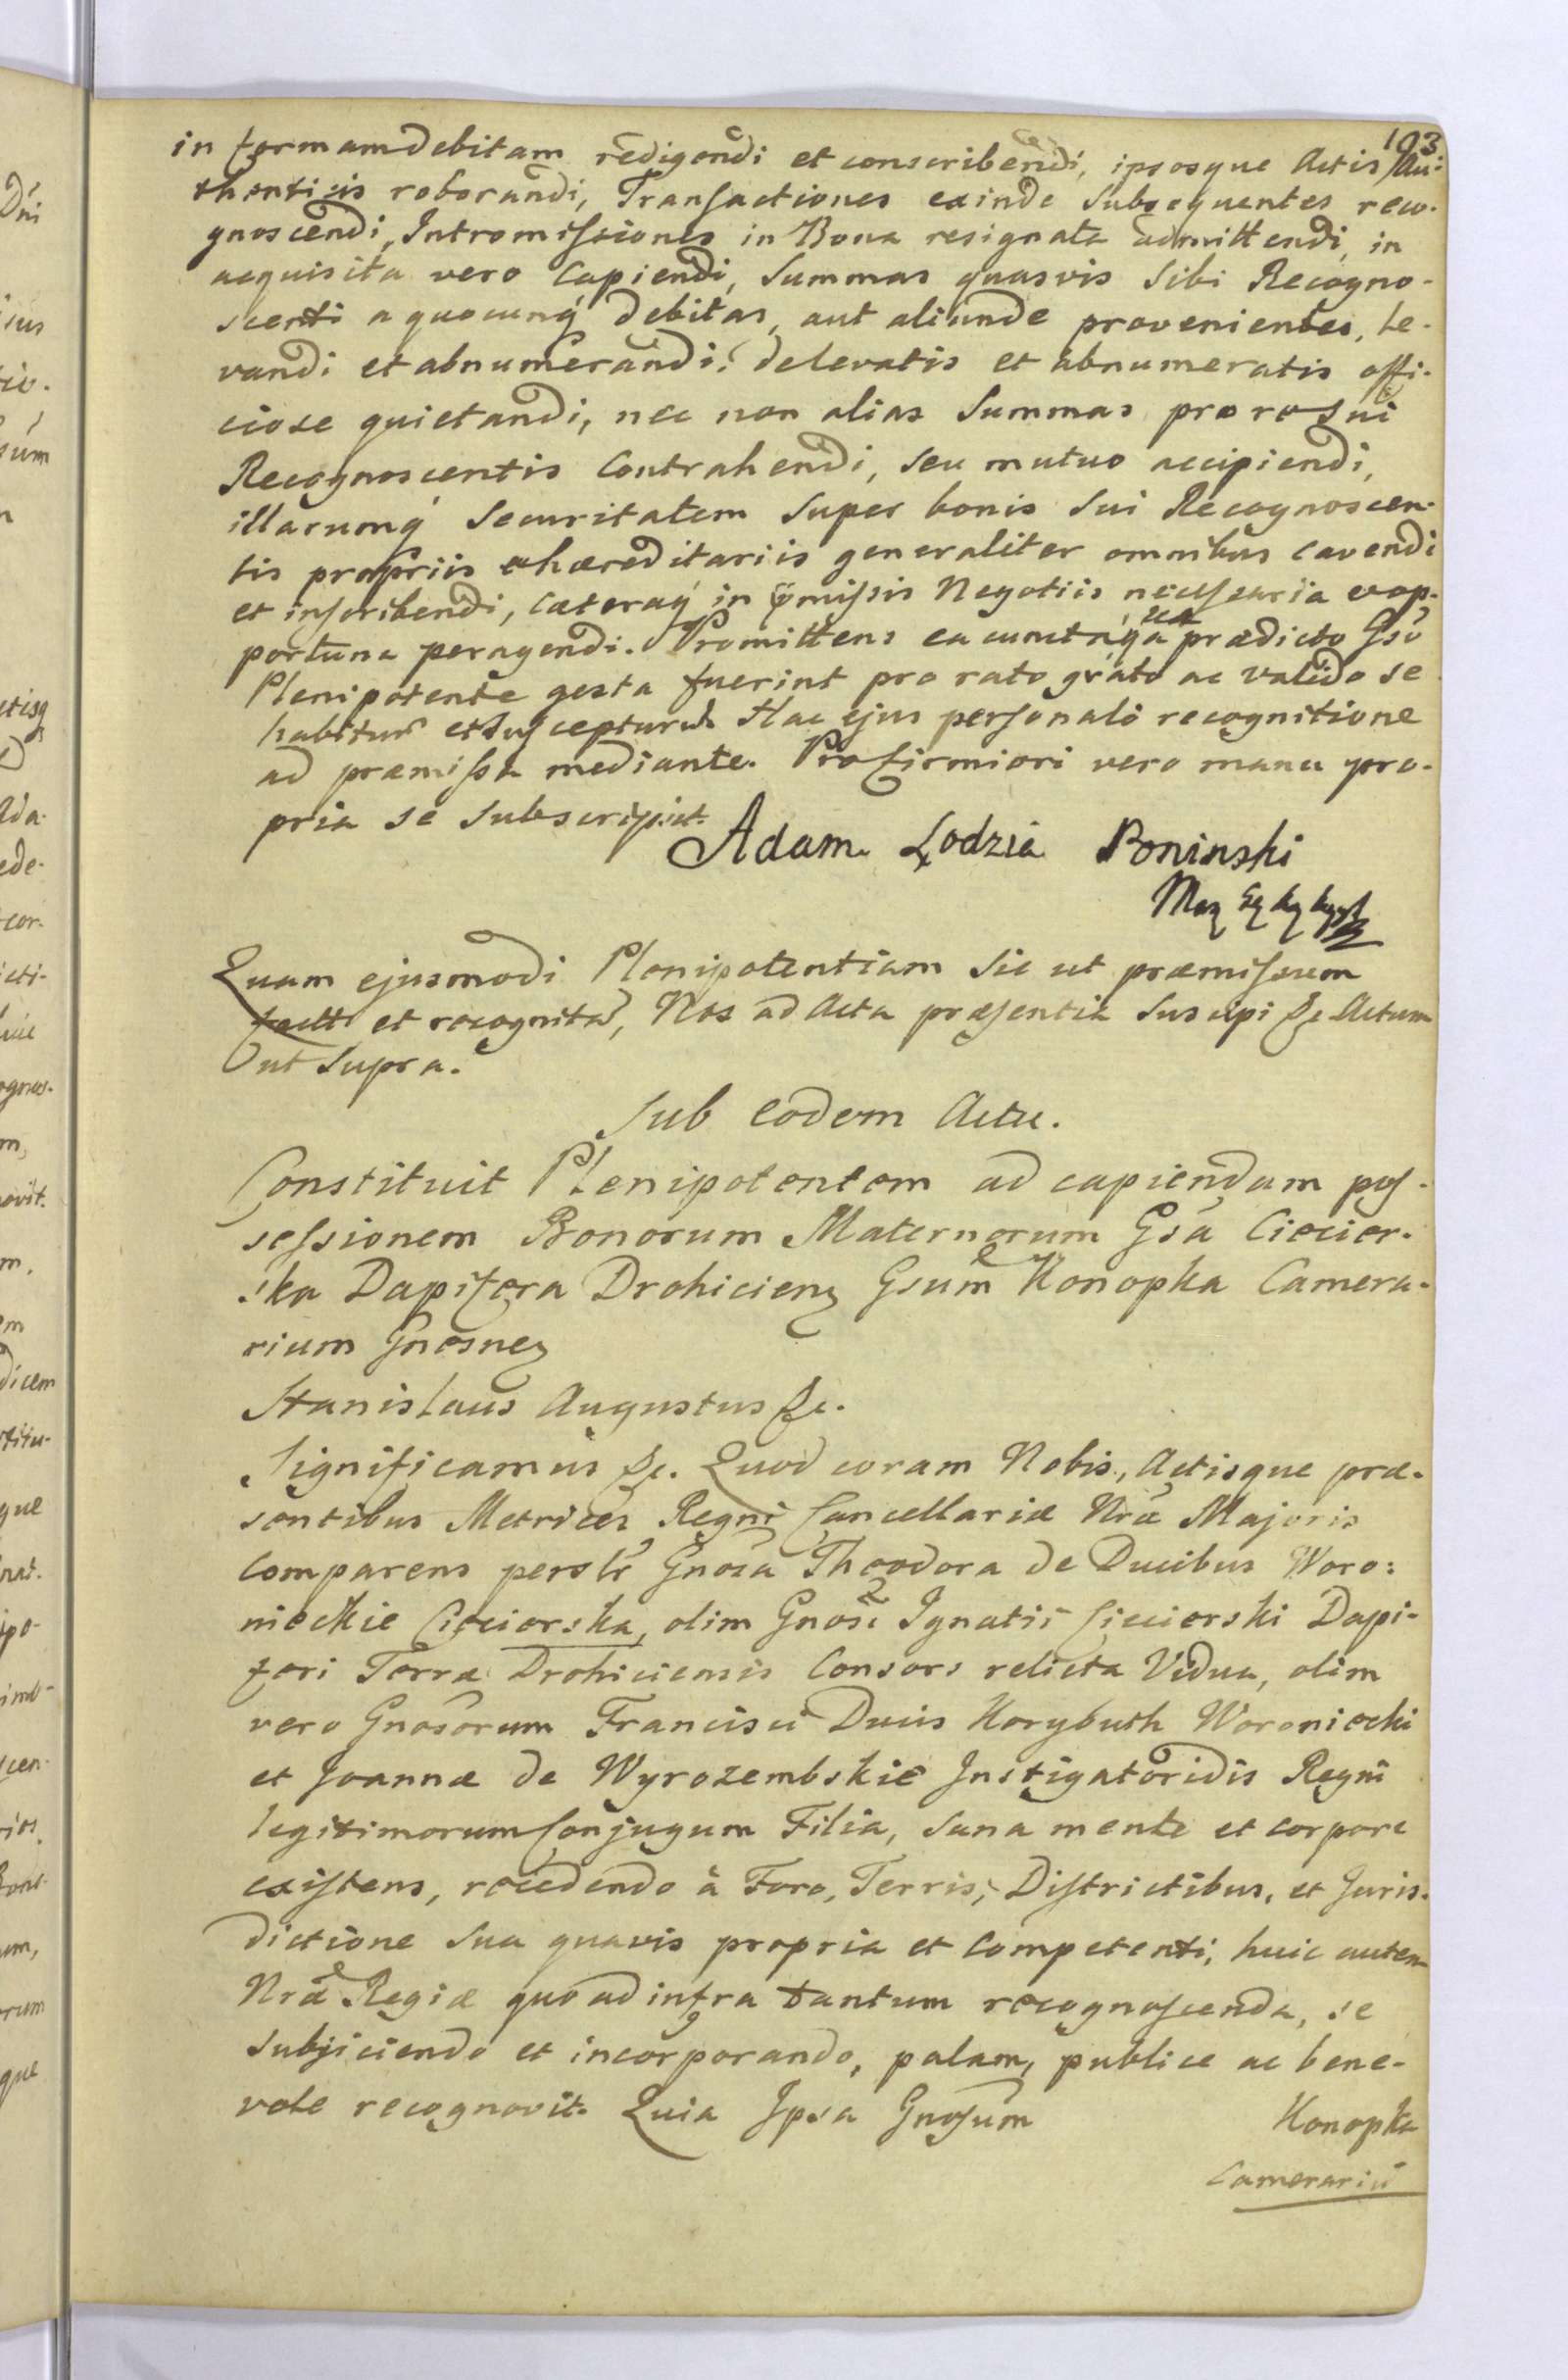 103
in formam debitam redigendi et conscribendi, ipsosque Actis Au-
thenticis roborandi, Transactiones exinde Subsequentes reco-
gnoscendi, Intromissiones in Bona resignata admittendi, in
acquisita vero Capiendi, Summas quasvis Sibi Recogno-
scenti a quocunq́ debitas, aut aliunde provenientes, le-
vandi et abnumerandi, delevatis et abnumeratis offi-
ciose quietandi, nec non alias Summas pro re Sui
Recognoscentis Contrahendi, seu mutuo accipiendi,
illarumq́ Securitatem Super bonis Sui Recognoscen-
tis propriis hæreditariis generaliter omnibus cavendi
et inscribendi, Cæteraq́ in p̄missis Negotiis necessaria et op-
portuna peragendi. Promittens ea cuncta, quæ a prædicto Gso
Plenipotente gesta fuerint pro rato grato ac valido se
habitur et suscepturum Hac ejus personali recognitione
ad præmissa mediante. Pro firmiori vero manu pro-
pria se Subscripsit.
Adam Lodzia Poninski
Quam ejusmodi Plenipotentiam Sic ut præmissum
et recognitã, Nos ad Acta præsentia Suscepi &c Actum
ut Supra.
Sub eodem Actu.
Constituit Plenipotentem ad capiendam pos-
sessionem Bonorum Maternorum Gsa Ciecier-
ska Dapifera Drohicien Gsum Konopka Camera-
rium Gnesnen
Stanislaus Augustus &c.
Significamus &c. Quod coram Nobis, Actisque præ-
sentibus Metrices Regni Cancellariæ Nræ Majoris
Comparens perslr Gnosa Theodora de Ducibus Woro:
nieckie Ciecierska, olim Gnosi Ignatii Ciecierski Dapi-
feri Terræ Drohiciensis Consors relicta Vidua, olim
vero Gnosorum Francisci Ducis Korybuth Woroniecki
et Joannæ de Wyrozembskie Instigatoridis Regni
legitimorum Conjugum Filia, sana mente et corpore
existens, recedendo à Foro, Terris, Districtibus, et Juris-
dictione sua quavis propria et Competenti, huic autem
Nræ Regiæ quo ad infra tantum recognoscenda, se
Subjiciendo et incorporando, palam, publice ac bene-
vole recognovit. Quia Ipsa Gnosum Konopka
Camerariũ